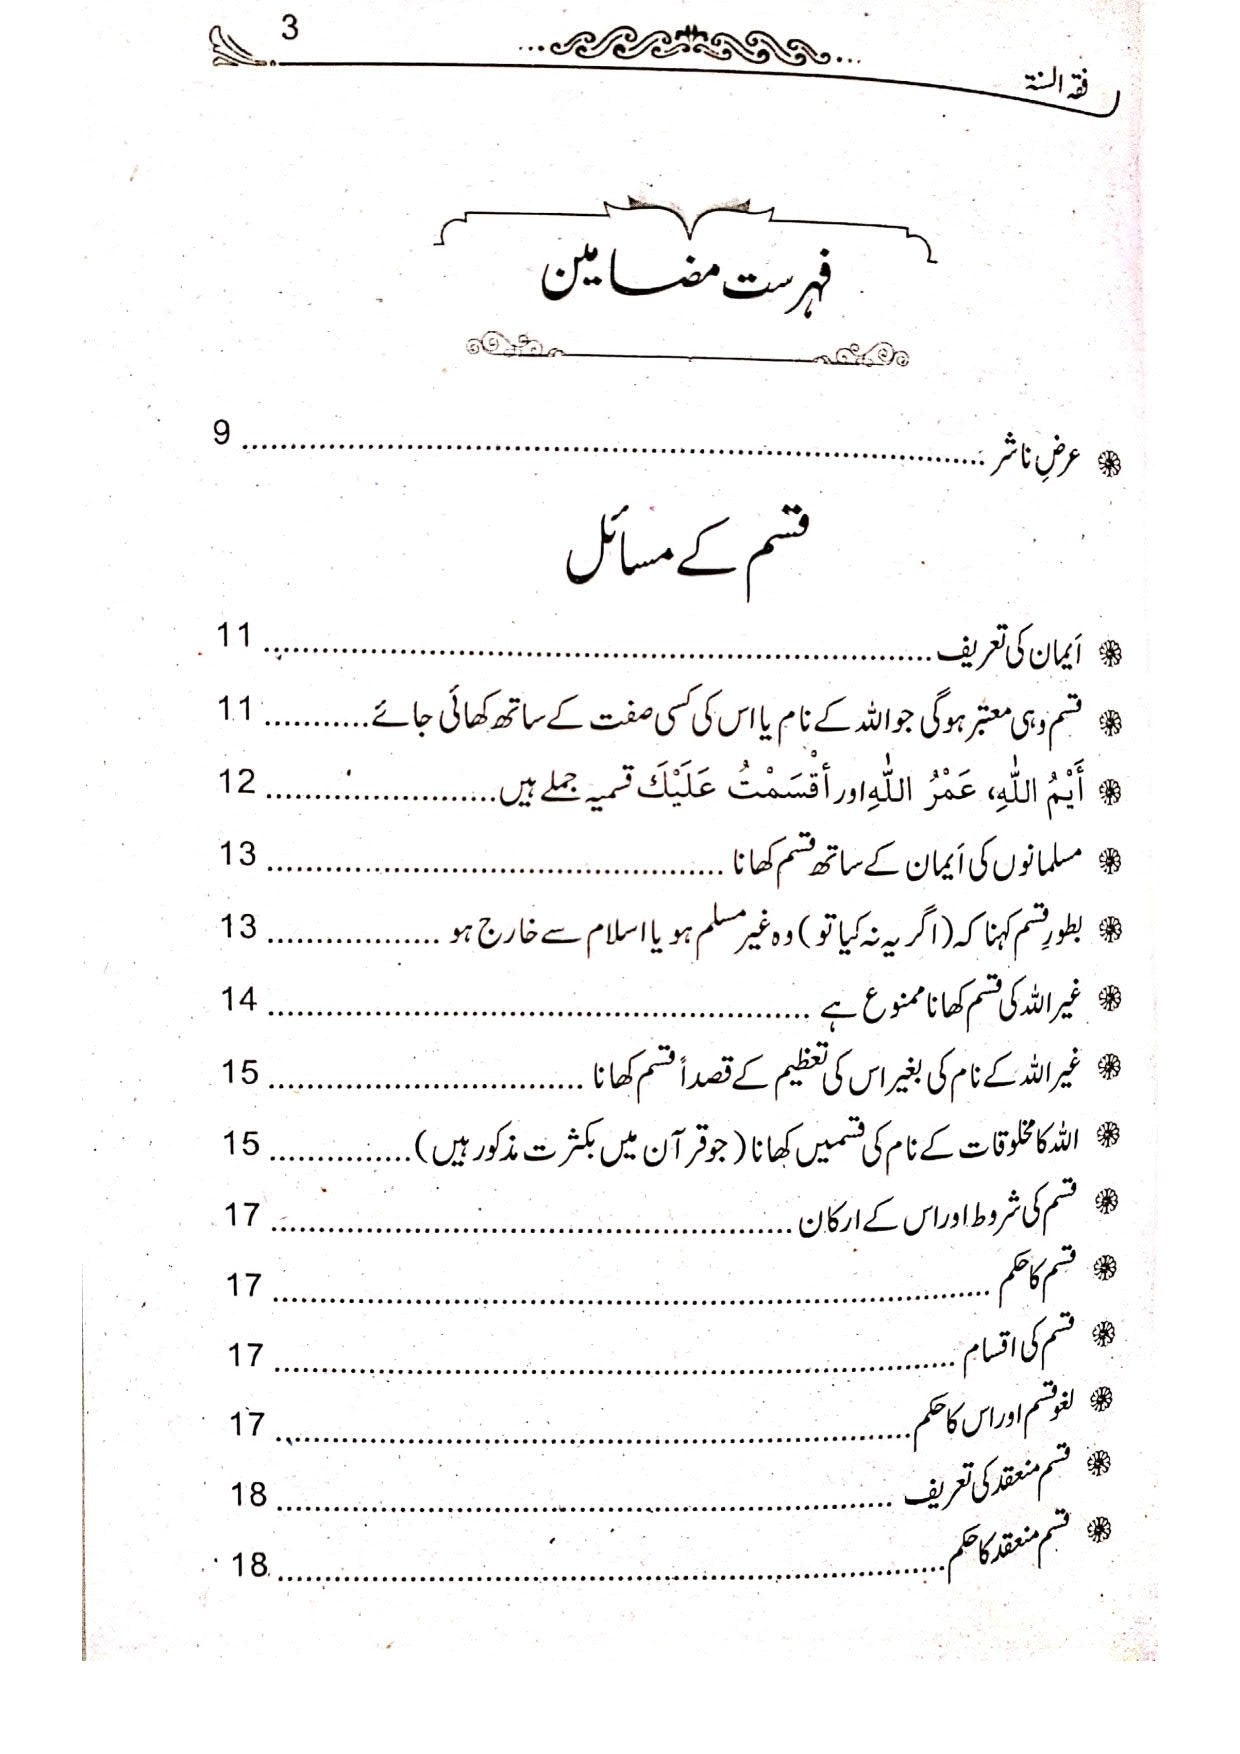 فقہ السنۃ 3
فہرست مضامین
عرضِ ناشر ........ 9
قسم کے مسائل
أیمان کی تعریف ........ 11
قسم وہی معتبر ہوگی جو اللہ کے نام یا اس کی کسی صفت کے ساتھ کھائی جائے ........ 11
أَيْمُ اللّٰهِ، عَمْرُ اللّٰهِ اور أَقْسَمْتُ عَلَيْكَ قسمیہ جملے ہیں ........ 12
مسلمانوں کی أیمان کے ساتھ قسم کھانا ........ 13
بطورِ قسم کہنا کہ (اگر یہ نہ کیا تو) وہ غیر مسلم ہو یا اسلام سے خارج ہو ........ 13
غیر اللہ کی قسم کھانا ممنوع ہے ........ 14
غیر اللہ کے نام کی بغیر اس کی تعظیم کے قصداً قسم کھانا ........ 15
اللہ کا مخلوقات کے نام کی قسمیں کھانا (جو قرآن میں بکثرت مذکور ہیں) ........ 15
قسم کی شروط اور اس کے ارکان ........ 17
قسم کا حکم ........ 17
قسم کی اقسام ........ 17
لغو قسم اور اس کا حکم ........ 17
قسم منعقد کی تعریف ........ 18
قسم منعقد کا حکم ........ 18